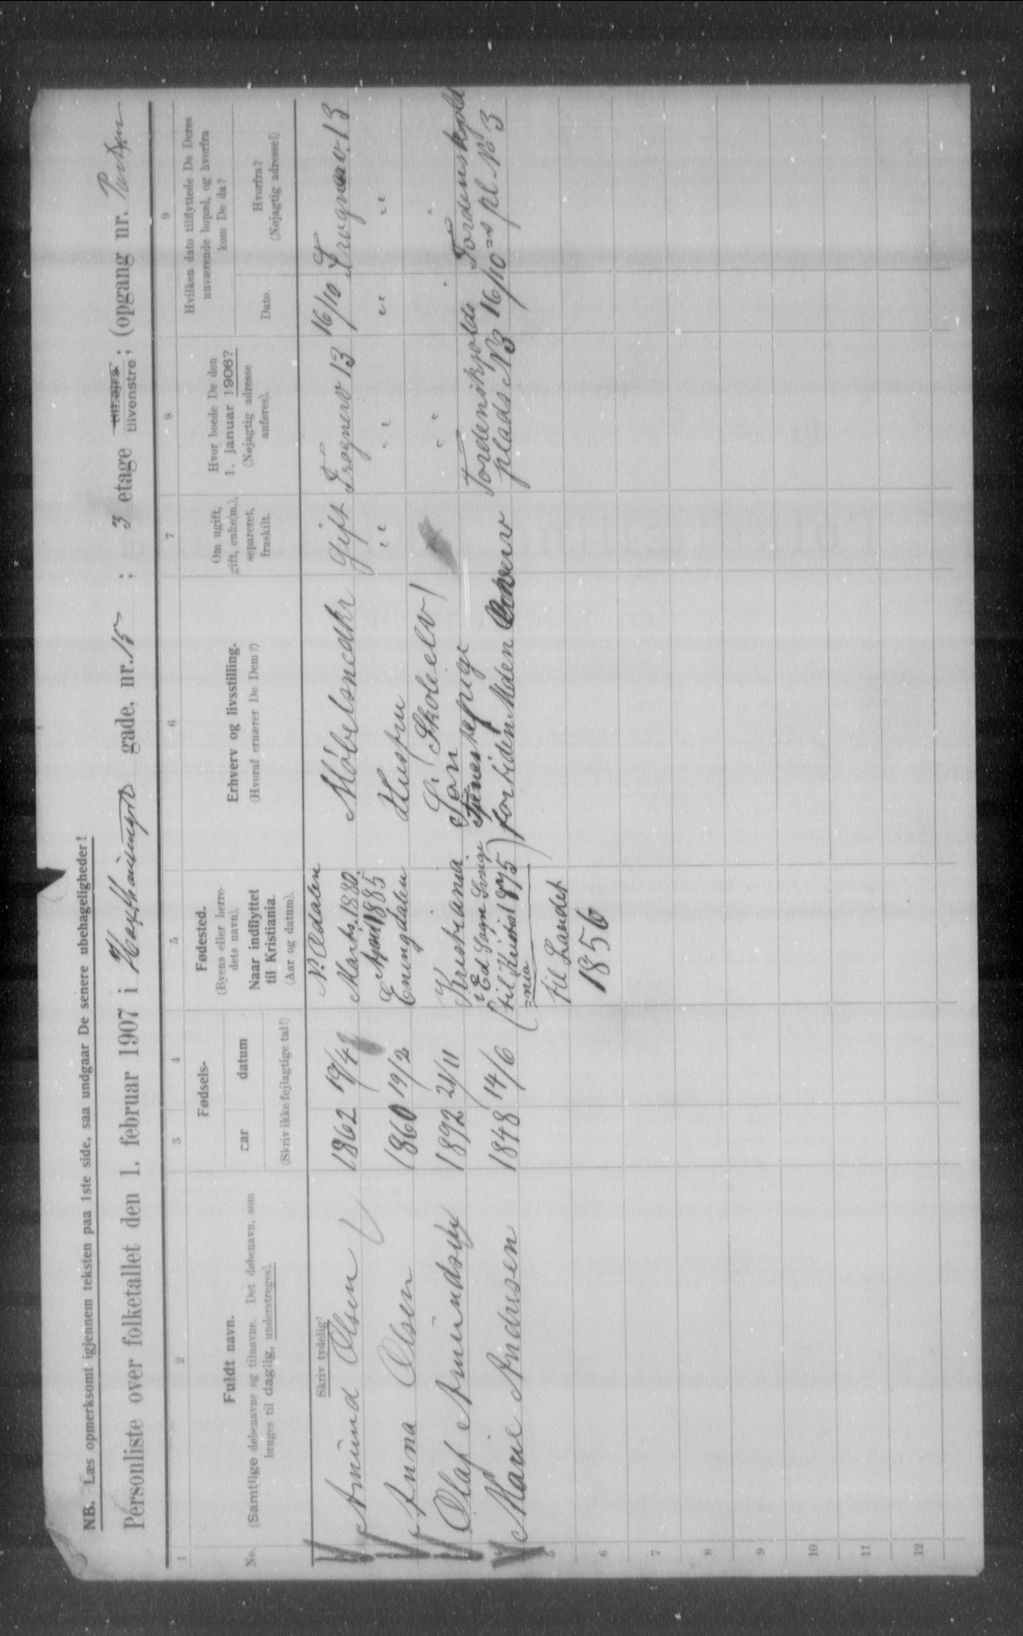 NB. Læs opmerksomt igjennem teksten paa 1ste side, saa undgaar De senere ubehageligheder!
Personliste over folketallet den 1. februar 1907 i gade, nr. 15 ; 3 etage tilhøjre tilvenstre ; (opgang nr.
1 2 3 4 5 6 7 8 9
No.
Fuldt navn.
(Samtlige døbenavne og tilnavne. Det døbenavn, som
bruges til daglig, understreges).
Fødsels-
aar datum
(Skriv ikke fejlagtige tal!)
Fødested.
(Byens eller herre-
dets navn).
Naar indflyttet
til Kristiania.
(Aar og datum).
Erhverv og livsstilling.
(Hvoraf ernærer De Dem?)
Om ugift,
gift, enke(m.),
separeret,
fraskilt.
Hvor boede De den
1. januar 1906?
(Nøjagtig adresse
anføres).
Hvilken dato tilflyttede De Deres
nuværende bopæl, og hvorfra
kom De da?
Dato.
Hvorfra?
(Nøjagtig adresse!)
Skriv tydelig!
Amund Olsen 1862 19/4 N. Odalen Marts 1880 Møbelsnedkr gift Frognerv 13 16/10 Frognerv. 13
Anna Olsen 1860 19/2 Eningdalen 1885 Hustru " " " "
Olaf Amundsen 1892 21/11 Kristiania Søn (Skoleelv) " " "
Marie Andresen 1848 14/6 Ed Sogn Sverige Tjenestepige Tordenskjolds Tordenskjold
(til Kristia 1875) plads N 3 16/10 pl. No 3
nia
til Landet
1856
5
6
7
8
9
10
11
12